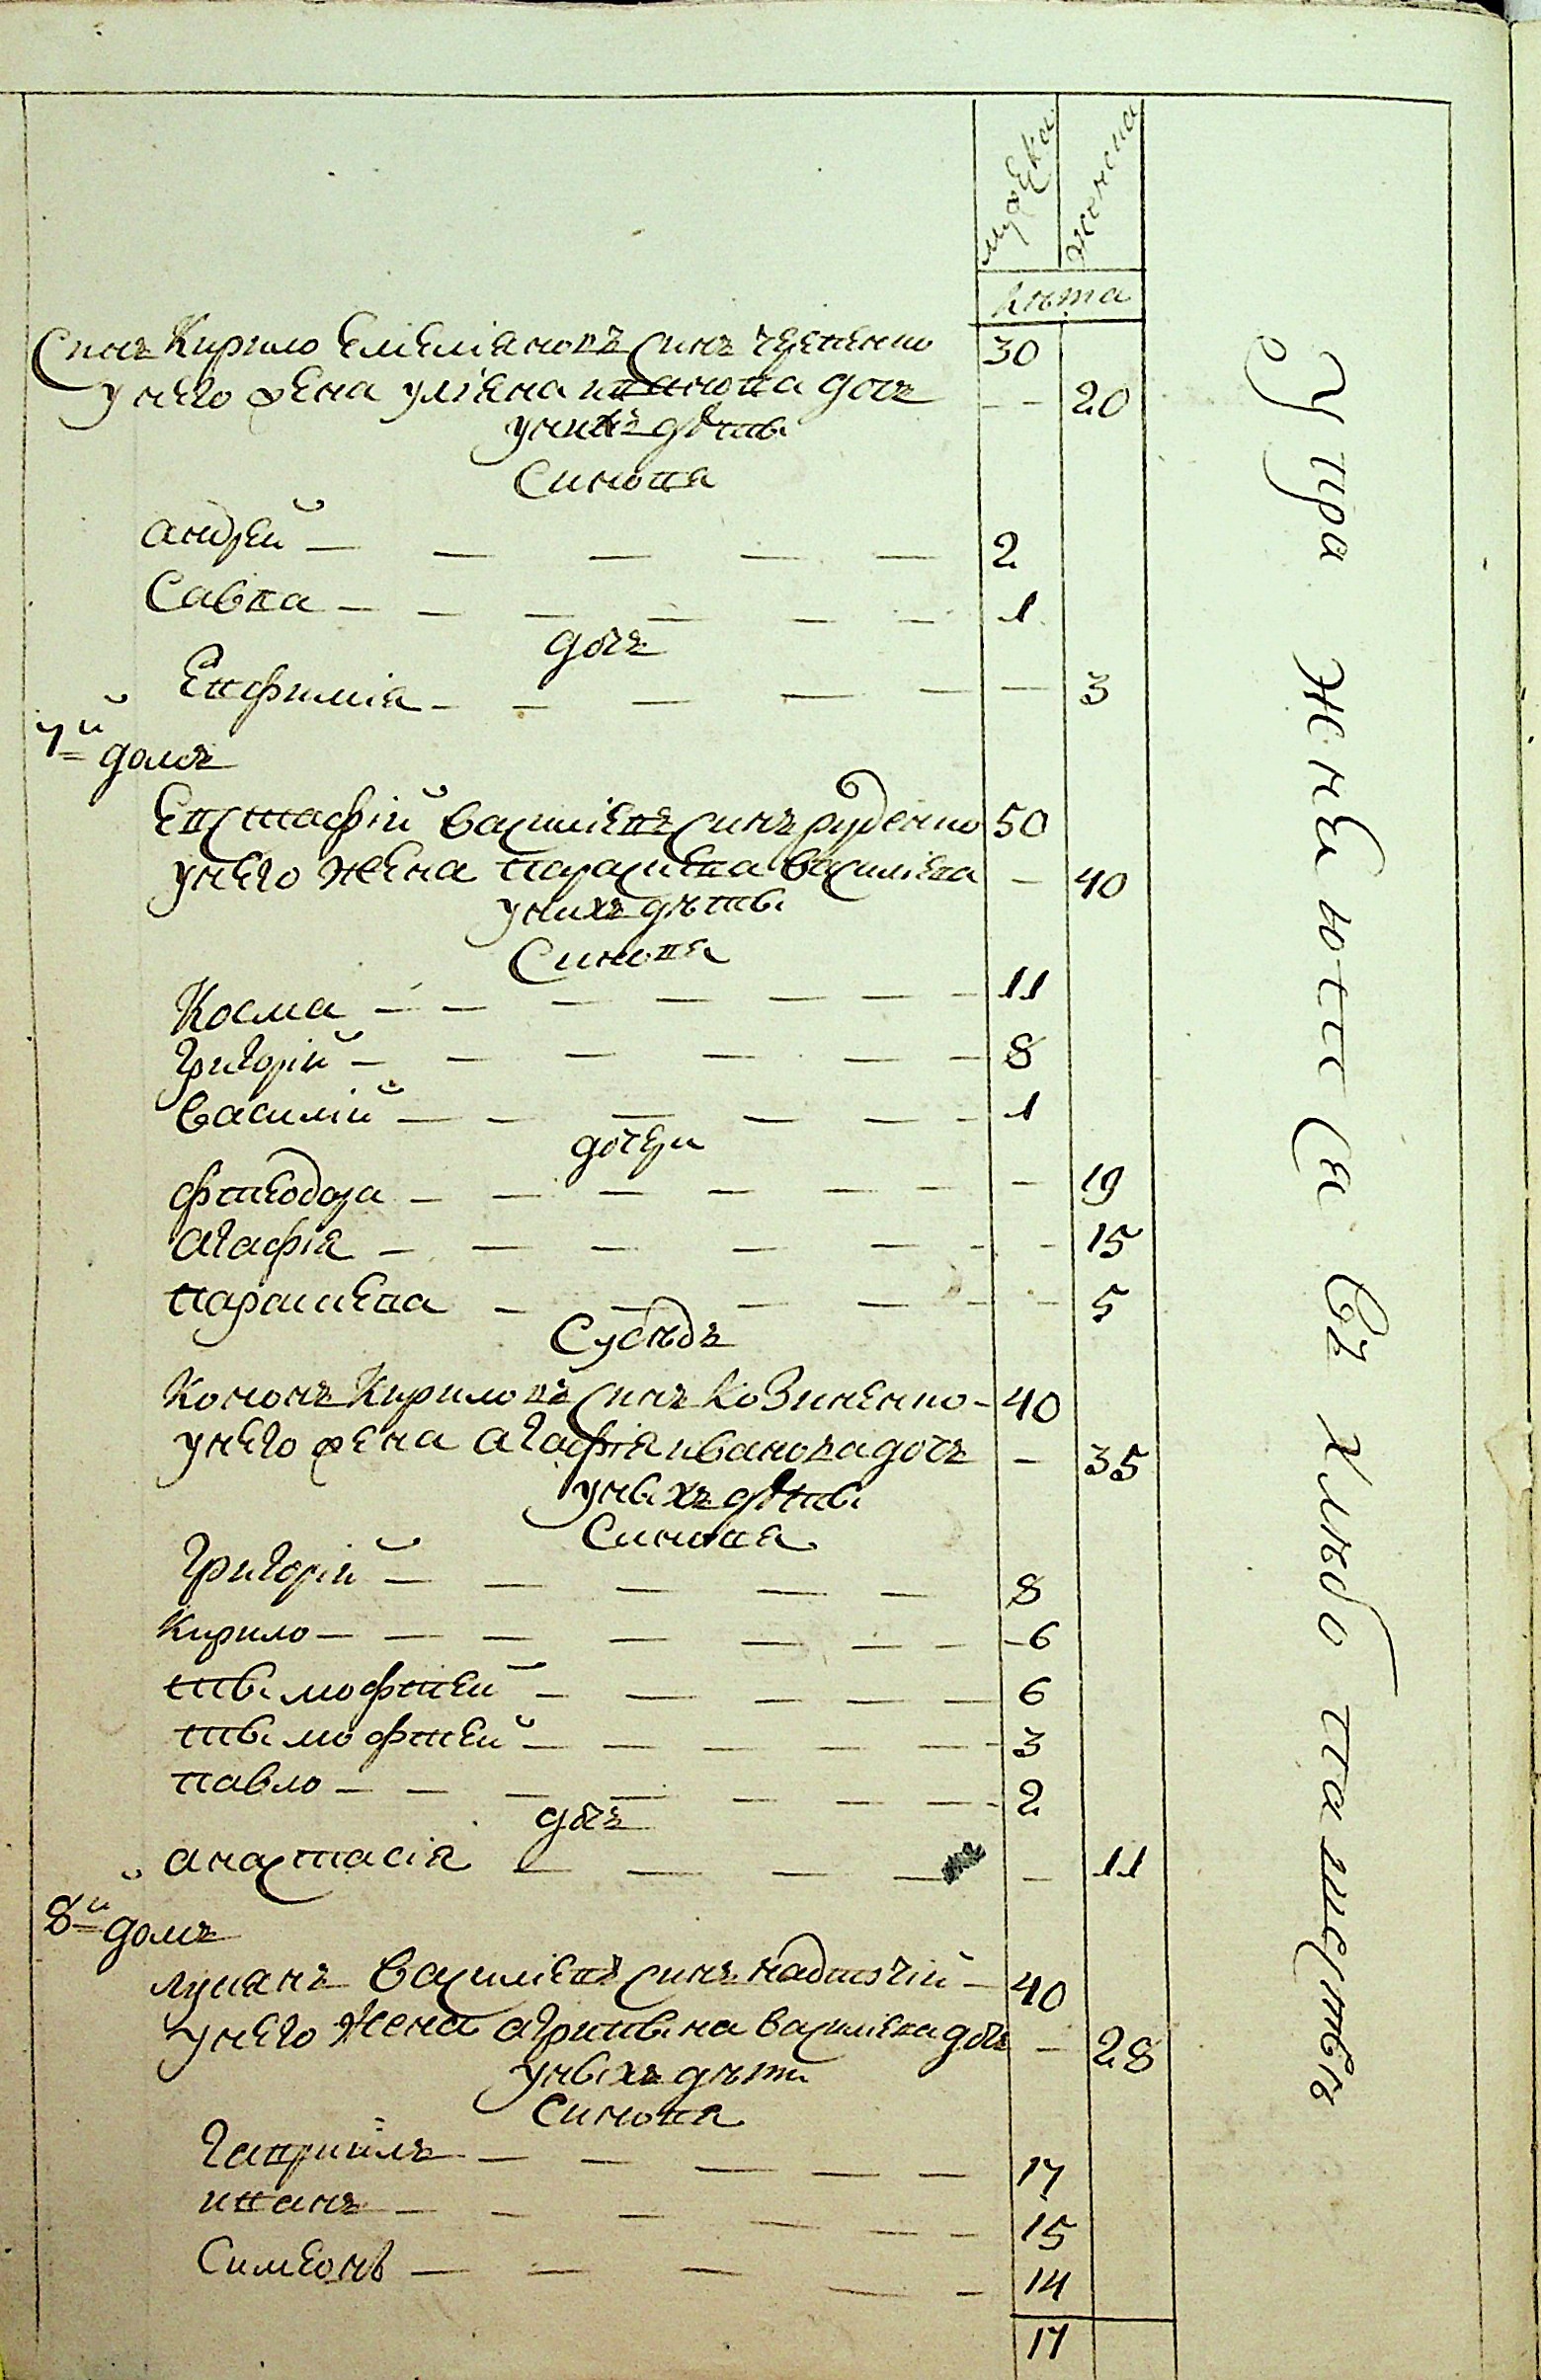 мужеска женска
лѣта
Синъ Кирило Емелїановъ синъ Череленко 30
у него жена Улїана иванова дочъ 20
у нихъ дѣти
Синовя
андрей 2
Савва 1
дочъ
Евфимїя 3
7й домъ
Евстафїй Василїевъ синъ руденко 50
у него жена параскева Василїева 40
у нихъ дѣти
Синовя
Косма 11
Григорїй 8
Василїй 1
дочери
Фтеодора 19
агафїя 15
параскева 5
Сусѣдъ
Кононъ Кириловъ синъ Козиненко 40
у него жена агафїя иванова дочъ 35
у нихъ дѣти
Синовя
Григорїй 8
Кирило 6
тимофтей 6
тимофтей 3
павло 2
дочъ
анастасїя 11
8й домъ
лукянъ Василїевъ синъ надточїй 40
у него жена агрипина Василїева дочъ 28
у нихъ дѣти
Синовя
Гаврїилъ 17
иванъ 15
Симеонъ 14
17
Упражняются въ хлѣбопашествѣ